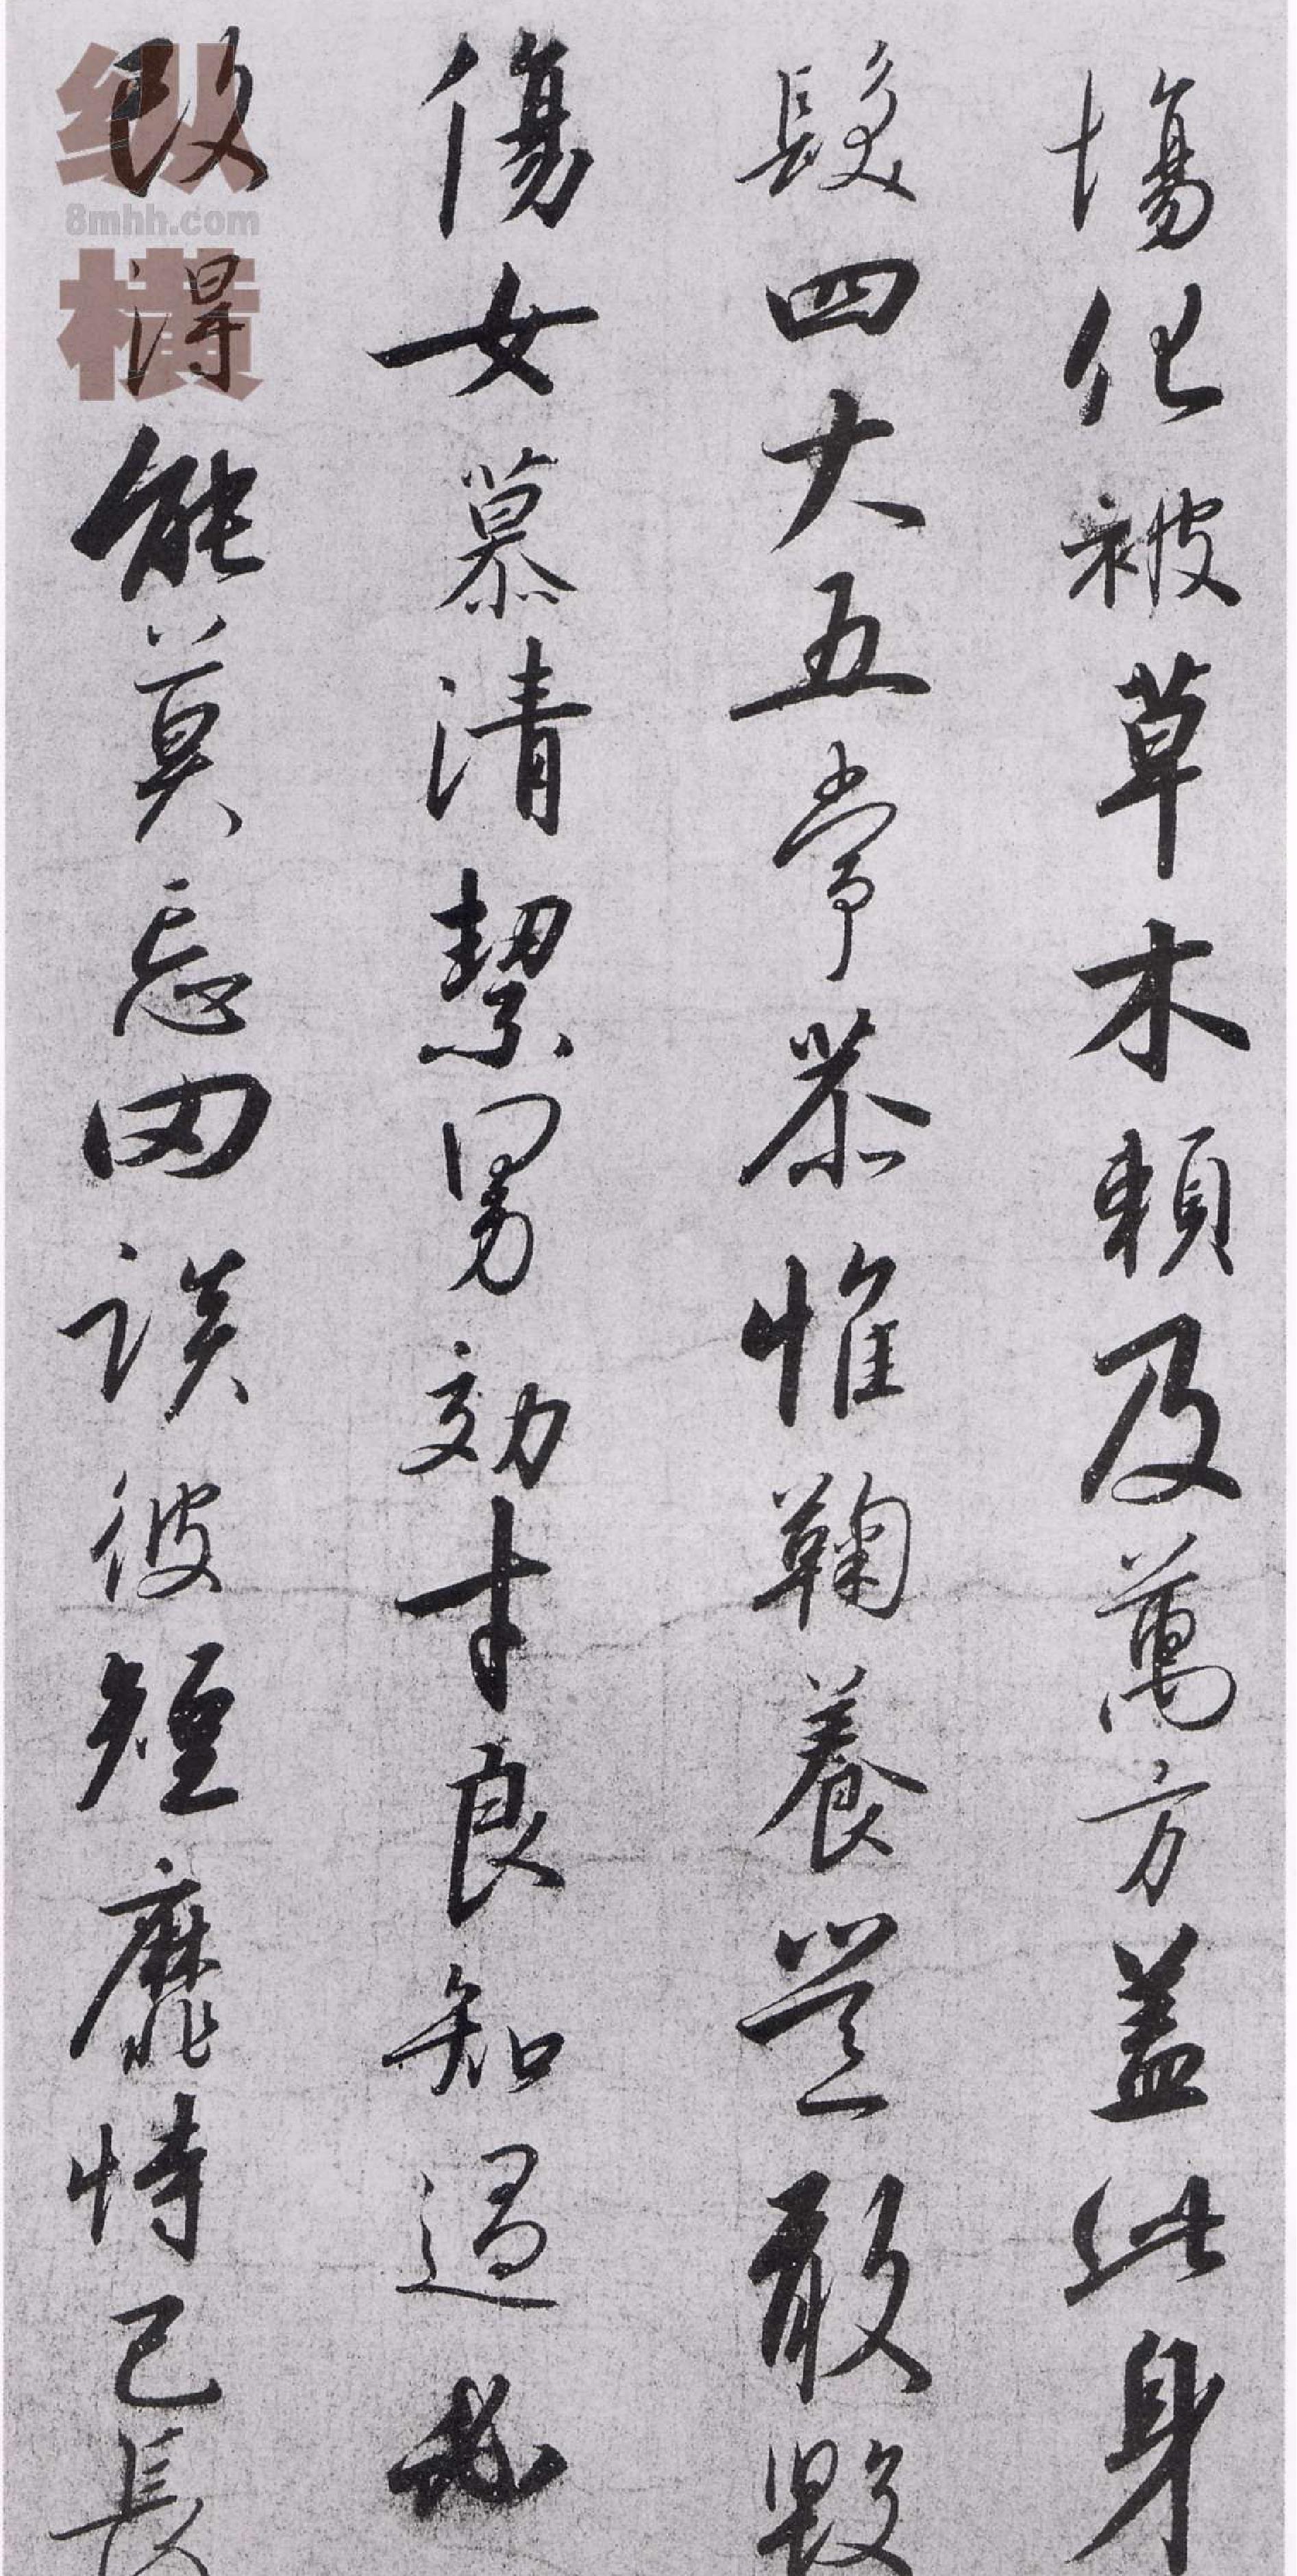 場化被草木賴及萬方蓋此身
髮四大五常恭惟鞠養豈敢毀
傷女慕清絜男効才良知過必
改得能莫忘罔談彼短靡恃己長
纵横
8mhh.com